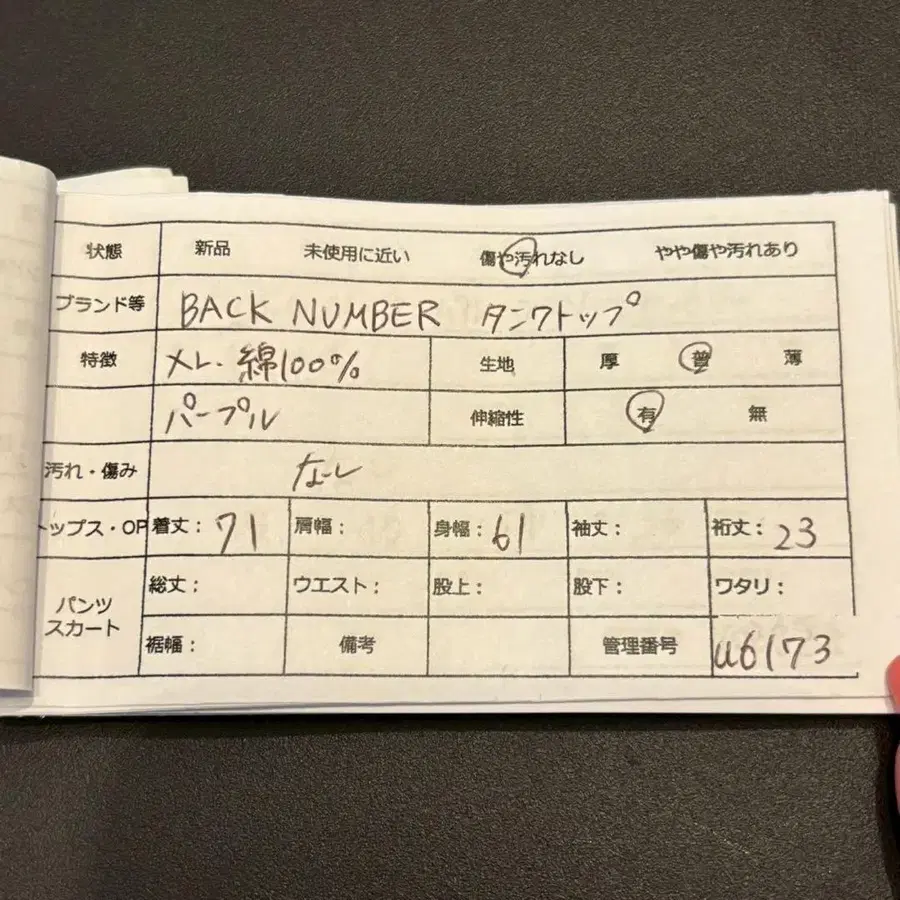 状態 新品 未使用に近い 傷や汚れなし やや傷や汚れあり
ブランド等 BACK NUMBER タンクトップ
特徴 メレ・綿100% 生地 厚 普 薄
パープル 伸縮性 有 無
汚れ・傷み なし
トップス・OP 着丈: 71 肩幅: 身幅: 61 袖丈: 裄丈: 23
パンツ スカート 総丈: ウエスト: 股上: 股下: ワタリ:
裾幅: 備考 管理番号 u6173